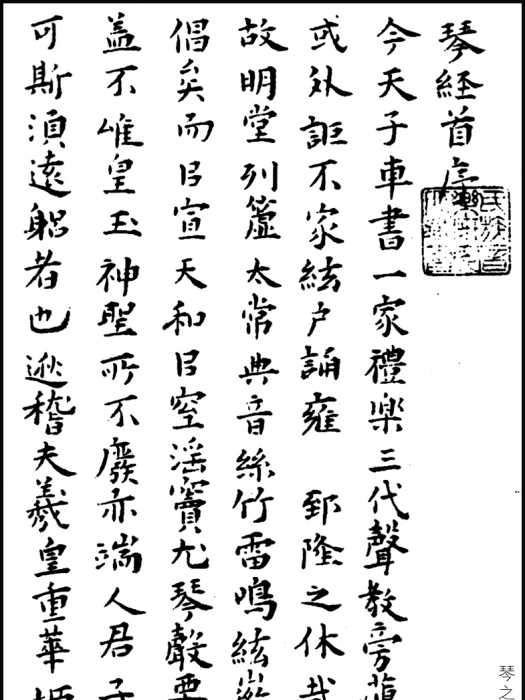 琴経首序
今天子車書一家禮樂三代聲教旁
或外詎不家絃户誦雍 郅隆之休哉
故明堂列簴太常典音絲竹雷鳴絃
倡矣而㠯宣天和㠯窒淫竇尤琴聲要
盖不唯皇王神聖所不廢亦端人君子
可斯湏遠躬者也遡稽夫羲皇重華
琴之